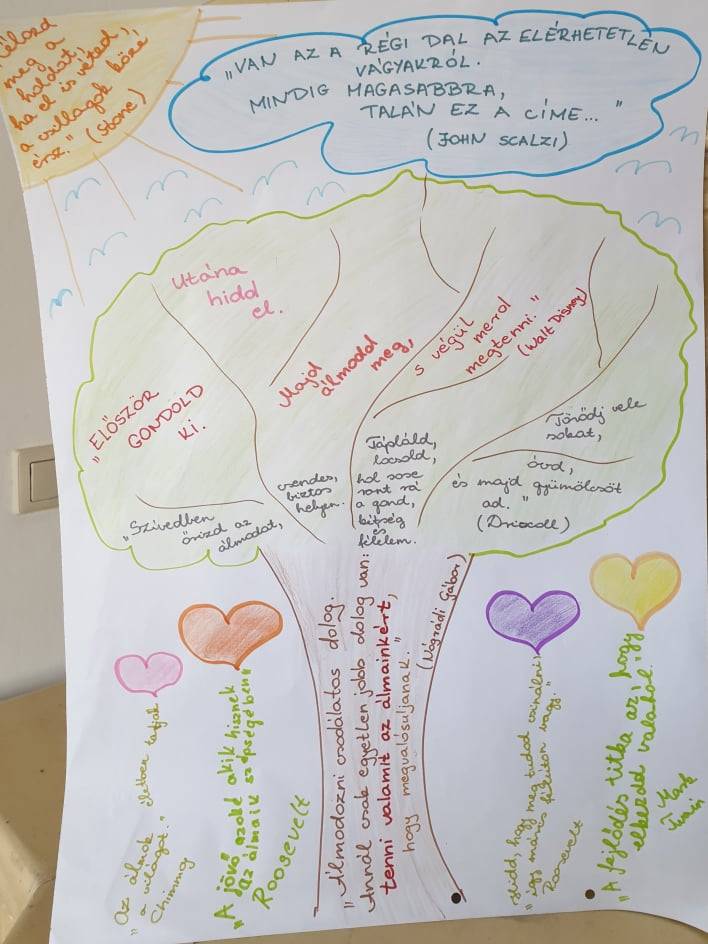 "Célozd
meg a
holdat,
ha el is véted,
a csillagok közé
érsz." (Stone)
"VAN AZ A RÉGI DAL AZ ELÉRHETETLEN
VÁGYAKRÓL.
MINDIG MAGASABBRA,
TALÁN EZ A CÍME..."
(JOHN SCALZI)
"ELŐSZÖR
GONDOLD
KI.
Utána
hidd
el.
Majd
álmodd
meg,
s végül
merd
megtenni."
(Walt Disney)
"Szívedben
őrizd az
álmodat,
csendes,
biztos
helyen.
Tápláld,
locsold,
hol sose
ront rá
a gond,
kétség
és
félelem.
Törődj vele
sokat,
óvd,
és majd gyümölcsöt
ad."
(Driscoll)
"Álmodozni csodálatos dolog.
Annál csak egyetlen jobb dolog van:
tenni valamit az álmainkért,
hogy megvalósuljanak."
(Nógrádi Gábor)
"Az álmok életben tartják
a világot."
"A jövő azoké akik hisznek
az álmaik szépségében"
Roosevelt
"Hidd, hogy meg tudod csinálni,
így máris félúton vagy."
Roosevelt
"A fejlődés titka az, hogy
elkezdd valahol."
Mark
Twain